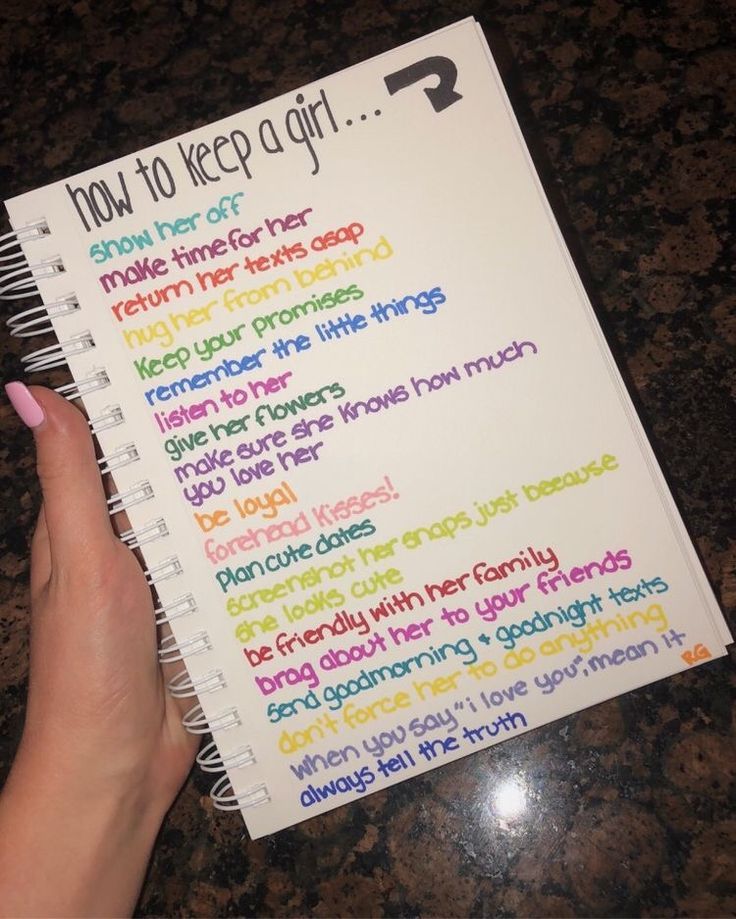 how to keep a girl...
show her off
make time for her
return her texts asap
hug her from behind
keep your promises
remember the little things
listen to her
give her flowers
make sure she knows how much
you love her
be loyal
forehead kisses!
plan cute dates
screenshot her snaps just because
she looks cute
be friendly with her family
brag about her to your friends
send goodmorning + goodnight texts
don't force her to do anything
when you say "i love you", mean it
always tell the truth
RG